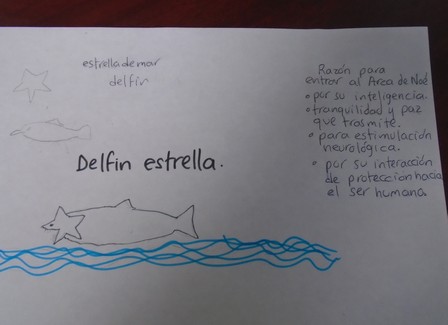 estrella de mar
delfín
Delfin estrella.
Razón para
entrar al Area de Noé
• por su inteligencia.
• tranquilidad y paz
que trasmite.
• para estimulación
neurológica.
• por su interacción
de proteccion hacia
el ser humana